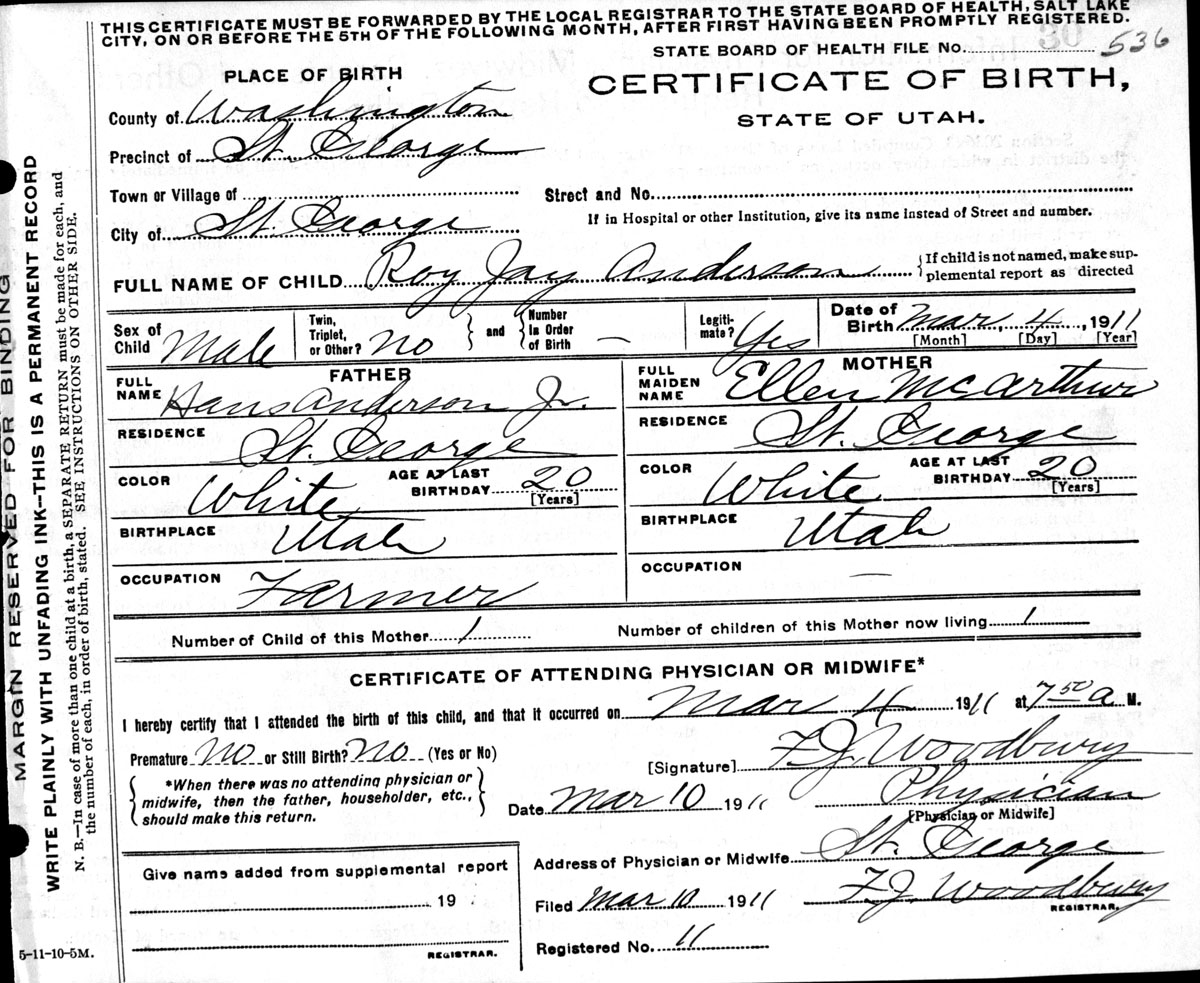 THIS CERTIFICATE MUST BE FORWARDED BY THE LOCAL REGISTRAR TO THE STATE BOARD OF HEALTH, SALT LAKE
CITY, ON OR BEFORE THE 5TH OF THE FOLLOWING MONTH, AFTER FIRST HAVING BEEN PROMPTLY REGISTERED.
STATE BOARD OF HEALTH FILE No. 536
PLACE OF BIRTH
CERTIFICATE OF BIRTH,
STATE OF UTAH.
County of Washington
Precinct of St. George
Town or Village of
Street and No.
City of St. George
If in Hospital or other Institution, give its name instead of Street and number.
FULL NAME OF CHILD Roy Jay Anderson
If child is not named, make sup-
plemental report as directed
Sex of Child Male
Twin, Triplet, or Other? No
and
Number In Order of Birth —
Legiti-mate? Yes
Date of Birth Mar, 4, 1911
[Month] [Day] [Year]
FATHER
FULL NAME Hans Anderson Jr.
RESIDENCE St. George
COLOR White AGE AT LAST BIRTHDAY 20
[Years]
BIRTHPLACE Utah
OCCUPATION Farmer
MOTHER
FULL MAIDEN NAME Ellen McArthur
RESIDENCE St. George
COLOR White AGE AT LAST BIRTHDAY 20
[Years]
BIRTHPLACE Utah
OCCUPATION —
Number of Child of this Mother 1 Number of children of this Mother now living 1
CERTIFICATE OF ATTENDING PHYSICIAN OR MIDWIFE*
I hereby certify that I attended the birth of this child, and that it occurred on Mar 4 1911 at 7 50 a M.
Premature No or Still Birth? No (Yes or No)
[Signature] F.J. Woodbury
*When there was no attending physician or
midwife, then the father, householder, etc.,
should make this return.
Date Mar 10 1911 Physician
[Physician or Midwife]
Address of Physician or Midwife St. George
Give name added from supplemental report
19
REGISTRAR.
Filed Mar 10 1911 F.J. Woodbury
REGISTRAR.
Registered No. 11
5-11-10-5M.
MARGIN RESERVED FOR BINDING
WRITE PLAINLY WITH UNFADING INK—THIS IS A PERMANENT RECORD
N. B.—In case of more than one child at a birth, a SEPARATE RETURN must be made for each, and
the number of each, in order of birth, stated. SEE INSTRUCTIONS ON OTHER SIDE.